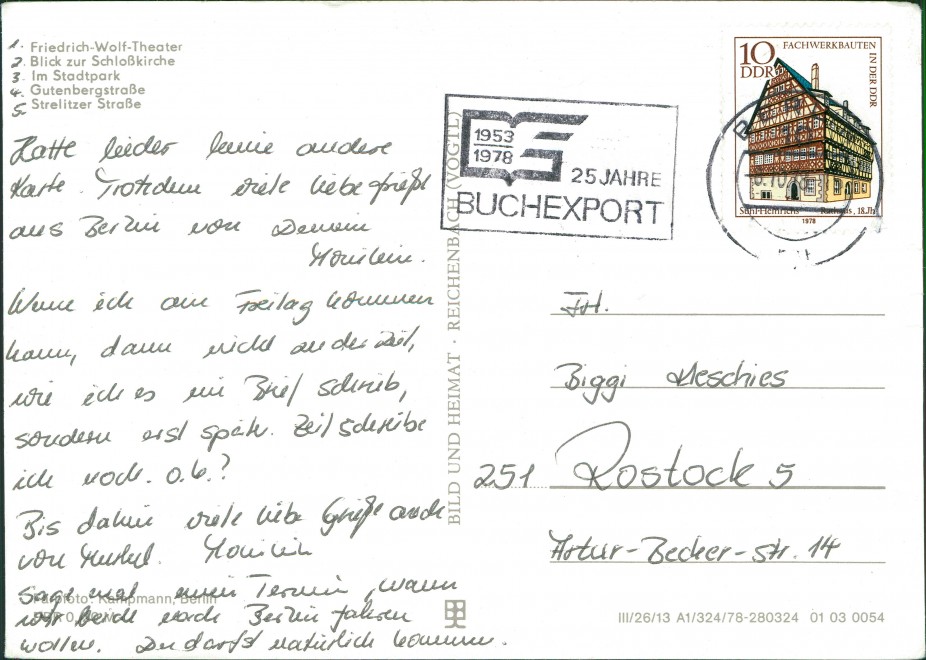 1. Friedrich-Wolf-Theater
2. Blick zur Schloßkirche
3. Im Stadtpark
4. Gutenbergstraße
5. Strelitzer Straße
Hatte leider keine andere
Karte. Trotzdem viele liebe Grüße
aus Berlin von Deinem
Wenn ich am Freitag kommen
kann, dann nicht an der Zeit,
wie ich es im Brief schrieb,
sondern erst später. Zeit schreibe
ich noch. o.k.?
Bis dahin viele liebe Grüße auch
von
sage mal einen Termin, wann
wir beide nach Berlin fahren
wollen. Du darfst natürlich kommen.
Farbfoto: Kampmann, Berlin
BILD UND HEIMAT · REICHENBACH (VOGTL)
1953
1978
25 JAHRE
BUCHEXPORT
10
DDR
FACHWERKBAUTEN
IN DER DDR
Suhl-Heinrichs Rathaus, 18.Jh.
1978
Frl.
Biggi Meschies
251 Rostock 5
Artur-Becker-Str. 14
III/26/13 A1/324/78-280324 01 03 0054